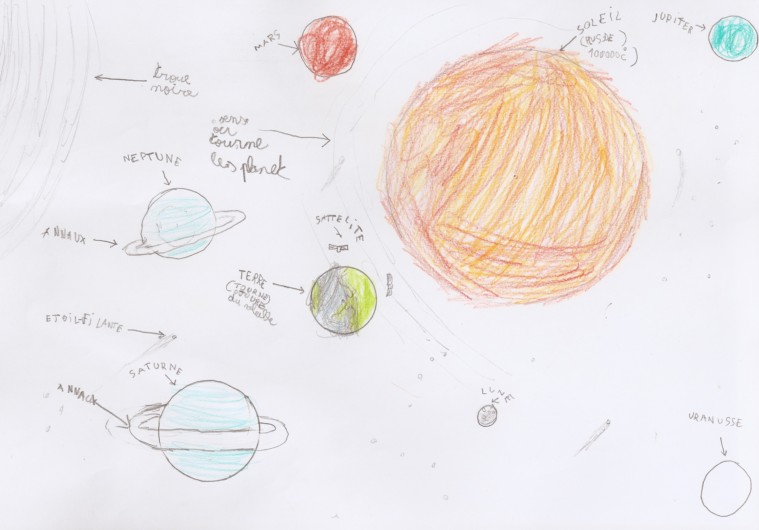 MARS
SOLEIL
(JUSKE)
100000C°)
JUPITER
troue
noire
sens
our
tourne
les planet
NEPTUNE
ANNAUX
SATTELITE
TERRE
(TOURNE)
du soleil
ETOIL-FILANTE
SATURNE
ANNAUX
LUNE
URANUSSE